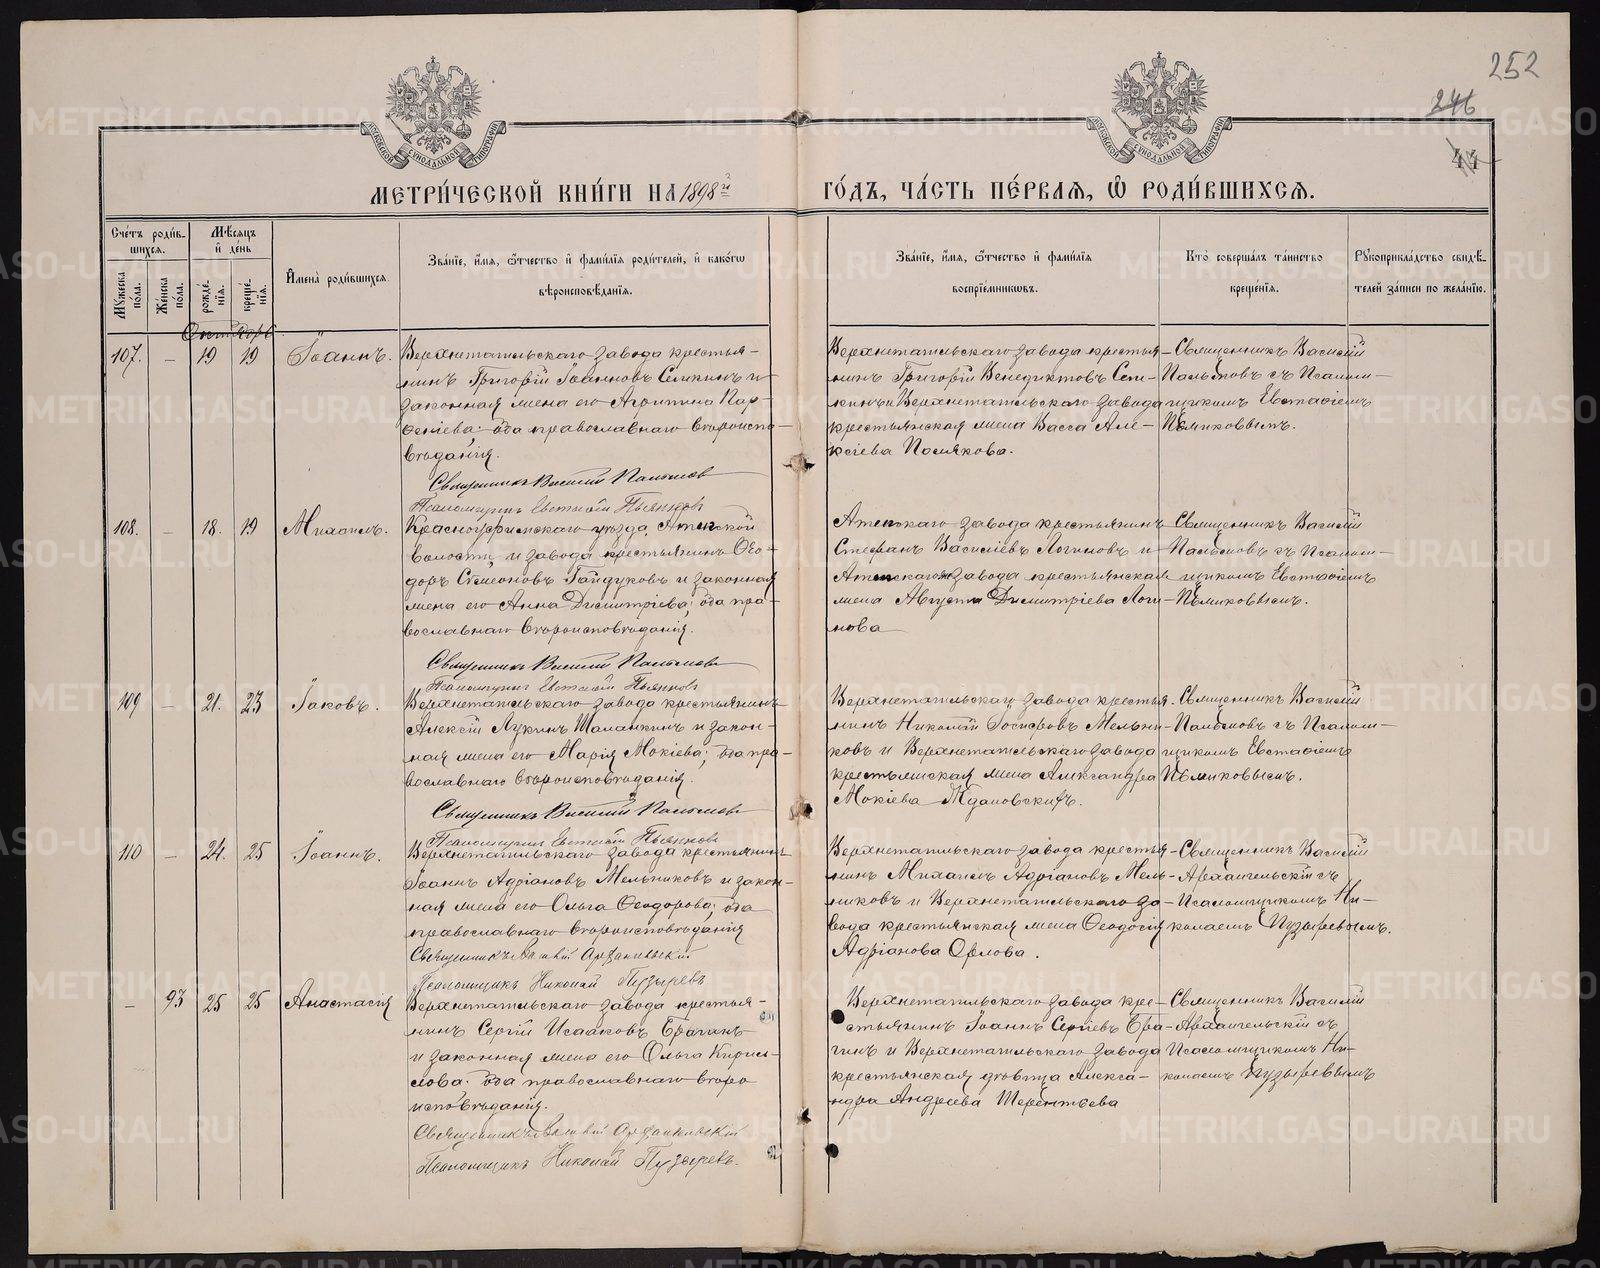 252
246
МЕТРИ́ЧЕСКОЙ КНИ́ГИ НА 1898й ГО́ДЪ, ЧА́СТЬ ПЕ́РВАѦ, Ѡ РОДИ́ВШИХСѦ.
МОСКОВСКОЙ СУНОДАЛЬНОЙ ТИПОГРАФІИ
МОСКОВСКОЙ СУНОДАЛЬНОЙ ТИПОГРАФІИ
Сче́тъ роди́в-
шихсѧ.
Мꙋ́жеска по́ла.
Же́нска по́ла.
Мѣ́сѧцъ и де́нь
рожде́-нїѧ.
креще́-нїѧ.
И҆мена̀ роди́вшихсѧ.
Зва́нїе, и҆́мѧ, ѻ҆́тчество и҆ фами́лїѧ роди́телей, и҆ како́гѡ
вѣроисповѣ́данїѧ.
Зва́нїе, и҆́мѧ, ѻ҆́тчество и҆ фами́лїѧ
воспрїе́мникѡвъ.
Кто̀ соверша́лъ та́инство
креще́нїѧ.
Рꙋкоприкла́дство свидѣ́-
телей за́писи по жела́нїю.
Октябрь.
107. – 19 19 Іоаннъ.
Верхнетагильскаго завода крестья-
нинъ Григорій Іоанновъ Селкинъ и
законная жена его Агриппина Пар-
ѳеніева; оба православнаго вѣроиспо-
вѣданія.
Священникъ Василій
Псаломщикъ Евстаѳій Пьянковъ
Верхнетагильскаго завода крестья-
нинъ Григорій Венедиктовъ Сел-
кинъ и Верхнетагильскаго завода
крестьянская жена Васса Але-
ксіева Полякова.
Священникъ Василій
съ Псалом-
щикомъ Евстаѳіемъ
Пьянковымъ.
108. – 18. 19 Михаилъ.
Красноуфимскаго уѣзда, Атигской
волости, и завода крестьянинъ Ѳео-
доръ Сѵмеоновъ Гайдуковъ и законная
жена его Анна Димитріева; оба пра-
вославнаго вѣроисповѣданія.
Священникъ Василій
Псаломщикъ Евстаѳій Пьянковъ
Атигскаго завода крестьянинъ
Стефанъ Василіевъ Логиновъ и
Атигскаго завода крестьянская
жена Августа Димитріева Логи-
нова
Священникъ Василій
съ Псалом-
щикомъ Евстаѳіемъ
Пьянковымъ.
109 – 21. 23 Іаковъ.
Верхнетагильскаго завода крестьянинъ
Алексій Лукинъ Шаманкинъ и закон-
ная жена его Марія Мокіева; оба пра-
вославнаго вѣроисповѣданія.
Священникъ Василій
Псаломщикъ Евстаѳій Пьянковъ
Верхнетагильскаго завода крестья-
нинъ Николай Іосифовъ Мельни-
ковъ и Верхнетагильскаго завода
крестьянская жена Александра
Мокіева
Священникъ Василій
съ Псалом-
щикомъ Евстаѳіемъ
Пьянковымъ.
110 – 24. 25 Іоаннъ.
Верхнетагильскаго завода крестьянинъ
Іоаннъ Адріановъ Мельниковъ и закон-
ная жена его Ольга Ѳеодорова; оба
православнаго вѣроисповѣданія
Священникъ Василій Архангельскій
Псаломщикъ Николай Пузыревъ
Верхнетагильскаго завода крестья-
нинъ Михаилъ Адріановъ Мель-
никовъ и Верхнетагильскаго за-
вода крестьянская жена Ѳеодосія
Адріанова Орлова.
Священникъ Василій
Архангельскій съ
Псаломщикомъ Ни-
колаемъ Пузыревымъ.
– 93 25 25 Анастасія
Верхнетагильскаго завода крестья-
нинъ Сергій Исааковъ Брагинъ
и законная жена его Ольга Кирил-
лова; оба православнаго вѣро
исповѣданія.
Священникъ Василій Архангельскій
Псаломщикъ Николай Пузыревъ.
Верхнетагильскаго завода кре-
стьянинъ Іоаннъ Сергіевъ Бра-
гинъ и Верхнетагильскаго завода
крестьянская дѣвица Алекса-
ндра Андреева Терентьева
Священникъ Василій
Архангельскій съ
Псаломщикомъ Ни-
колаемъ Пузыревымъ
METRIKI.GASO-URAL.RU